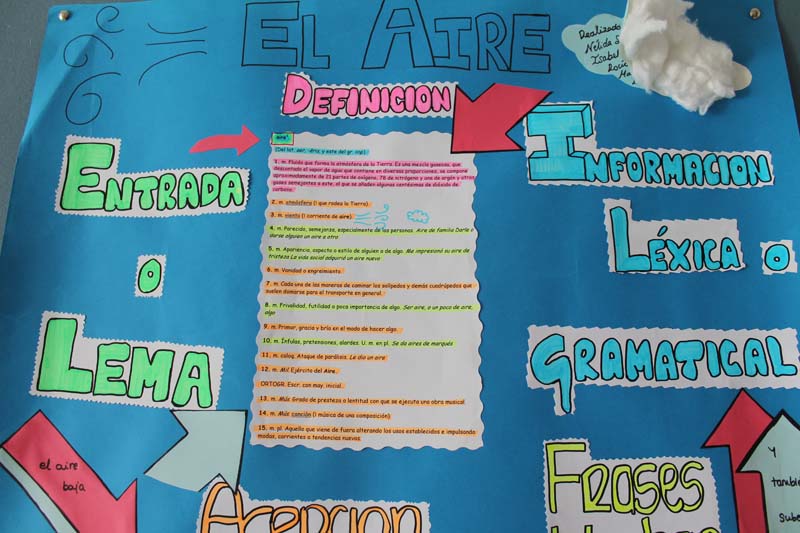 EL AIRE
Realizado
Nélida S
Isabel
Rocí
Ma
DEFINICION
ENTRADA
O
LEMA
INFORMACION
LÉXICA O
GRAMATICAL
aire¹
(Del lat. aer, -ĕris, y este del gr. ἀήρ).
1. m. Fluido que forma la atmósfera de la Tierra. Es una mezcla gaseosa, que,
descontado el vapor de agua que contiene en diversas proporciones, se compone
aproximadamente de 21 partes de oxígeno, 78 de nitrógeno y una de argón y otros
gases semejantes a este, al que se añaden algunas centésimas de dióxido de
carbono.
2. m. atmósfera (‖ que rodea la Tierra).
3. m. viento (‖ corriente de aire).
4. m. Parecido, semejanza, especialmente de las personas. Aire de familia Darle o
darse alguien un aire a otro
5. m. Apariencia, aspecto o estilo de alguien o de algo. Me impresionó su aire de
tristeza La vida social adquirió un aire nuevo
6. m. Vanidad o engreimiento.
7. m. Cada una de las maneras de caminar los solípedos y demás cuadrúpedos que
suelen domarse para el transporte en general.
8. m. Frivolidad, futilidad o poca importancia de algo. Ser aire, o un poco de aire,
algo
9. m. Primor, gracia y brío en el modo de hacer algo.
10. m. Ínfulas, pretensiones, alardes. U. m. en pl. Se da aires de marqués
11. m. coloq. Ataque de parálisis. Le dio un aire
12. m. Mil. Ejército del Aire.
ORTOGR. Escr. con may. inicial.
13. m. Mús. Grado de presteza o lentitud con que se ejecuta una obra musical.
14. m. Mús. canción (‖ música de una composición).
15. m. pl. Aquello que viene de fuera alterando los usos establecidos e impulsando
modas, corrientes o tendencias nuevas.
el aire
baja
ACEPCION
FRASES
Y
también
sube